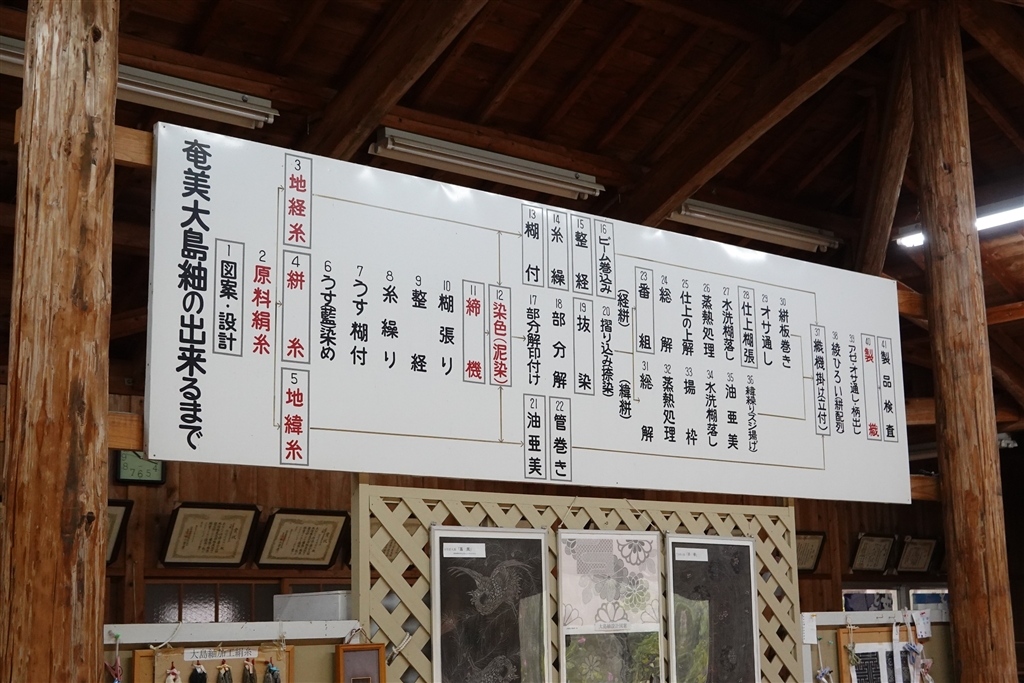 奄美大島紬の出来るまで
1 図案・設計
2 原料絹糸
3 地経糸
4 絣糸
5 地緯糸
6 うす藍染め
7 うす糊付
8 糸繰り
9 整経
10 糊張り
11 締機
12 染色(泥染)
13 糊付
14 糸繰
15 整経
16 ビーム巻込み
17 部分解印付け
18 部分解
19 抜染
20 摺り込み捺染
21 油亜美
22 管巻き
(経絣)
23 番組
24 総解
25 仕上の上解
26 蒸熱処理
27 水洗糊落し
28 仕上糊張
29 オサ通し
30 絣板巻き
(緯絣)
31 総解
32 蒸熱処理
33 揚枠
34 水洗糊落し
35 油亜美
36 緯繰り(スジ揚げ)
37 織機掛け(立付)
38 綾ひろい(絣配列)
39 アゼ・オサ通し・柄出し
40 製織
41 製品検査
大島紬加工絹糸